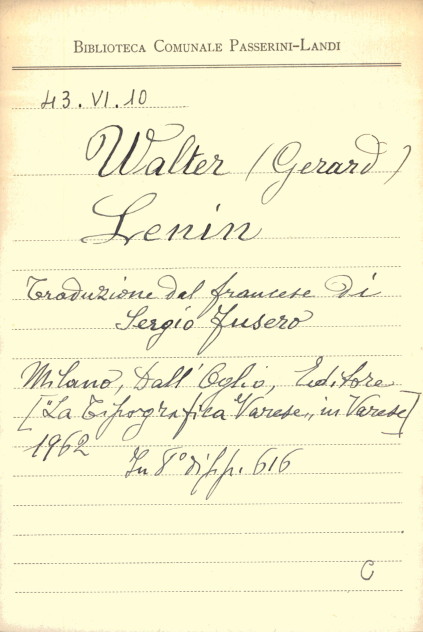 BIBLIOTECA COMUNALE PASSERINI-LANDI
43.VI.10
Walter (Gerard)
Lenin
Traduzione dal francese di
Sergio Fusero
Milano, Dall'Oglio, Editore
["La Tipografica Varese„ in Varese]
1962
In 8° di pp. 616
C